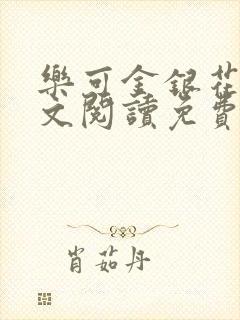 樂可金銀花
文閱讀免費
肖茹丹